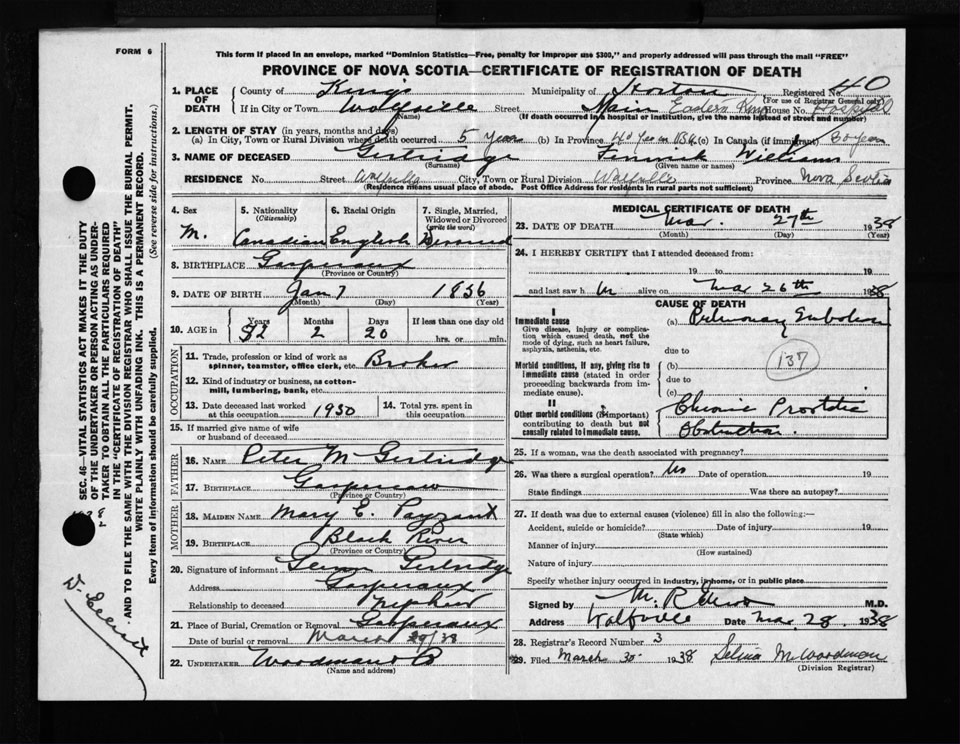 FORM 6
This form if placed in an envelope, marked "Dominion Statistics—Free, penalty for improper use $300," and properly addressed will pass through the mail "FREE"
PROVINCE OF NOVA SCOTIA—CERTIFICATE OF REGISTRATION OF DEATH
1. PLACE OF DEATH
County of Kings Municipality of Horton Registered No. 40
(For use of Registrar General only)
If in City or Town Wolfville Street Main Eastern Kings House No. Hospital
(Name) (If death occurred in a hospital or institution, give the name instead of street and number)
2. LENGTH OF STAY (in years, months and days)
(a) In City, Town or Rural Division where death occurred 5 Years (b) In Province (c) In Canada (if immigrant)
3. NAME OF DECEASED Gertridge Williams
(Surname) (Given name or names)
RESIDENCE No. Street Wolfville City, Town or Rural Division Wolfville Province Nova Scotia
(Residence means usual place of abode. Post Office Address for residents in rural parts not sufficient)
4. Sex
M.
5. Nationality
(Citizenship)
Canadian
6. Racial Origin
English
7. Single, Married, Widowed or Divorced
(write the word)
8. BIRTHPLACE Gaspereaux
(Province or Country)
9. DATE OF BIRTH Jan 7
(Month) (Day) (Year)
10. AGE in
Years Months Days If less than one day old
2 20 hrs. or min.
OCCUPATION
11. Trade, profession or kind of work as spinner, teamster, office clerk, etc. Broker
12. Kind of industry or business, as cotton-mill, lumbering, bank, etc.
13. Date deceased last worked at this occupation 1930
14. Total yrs. spent in this occupation
15. If married give name of wife or husband of deceased
FATHER
16. NAME Peter M Gertridge
17. BIRTHPLACE
(Province or Country)
MOTHER
18. MAIDEN NAME Mary E. Payzant
19. BIRTHPLACE Black River
(Province or Country)
20. Signature of informant Gertridge
Address Gaspereaux
Relationship to deceased nephew
21. Place of Burial, Cremation or Removal Gaspereaux
Date of burial or removal March 29/38
22. UNDERTAKER Woodman
(Name and address)
MEDICAL CERTIFICATE OF DEATH
23. DATE OF DEATH Mar. 27th 1938
(Month) (Day) (Year)
24. I HEREBY CERTIFY that I attended deceased from:
19 to 19
and last saw h im alive on Mar 26th 1938
CAUSE OF DEATH
I
Immediate cause
Give disease, injury or complication which caused death, not the mode of dying, such as heart failure, asphyxia, asthenia, etc.
(a) Pulmonary Embolism
due to
Morbid conditions, if any, giving rise to immediate cause (stated in order proceeding backwards from immediate cause).
(b) 137
due to
(c)
II
Other morbid conditions (if important) contributing to death but not causally related to immediate cause.
Chronic Prostatic
Obstruction.
25. If a woman, was the death associated with pregnancy?
26. Was there a surgical operation? No Date of operation 19
State findings Was there an autopsy?
27. If death was due to external causes (violence) fill in also the following:—
Accident, suicide or homicide? Date of injury 19
(State which)
Manner of injury
(How sustained)
Nature of injury
Specify whether injury occurred in industry, in home, or in public place
Signed by M. R. M.D.
Address Wolfville Date Mar. 28. 1938
28. Registrar's Record Number 3
29. Filed March 30 1938 Selina M Woodman
(Division Registrar)
SEC. 46—VITAL STATISTICS ACT MAKES IT THE DUTY
OF THE UNDERTAKER OR PERSON ACTING AS UNDER-
TAKER TO OBTAIN ALL THE PARTICULARS REQUIRED
IN THE "CERTIFICATE OF REGISTRATION OF DEATH"
AND TO FILE THE SAME WITH THE DIVISION REGISTRAR WHO SHALL ISSUE THE BURIAL PERMIT.
WRITE PLAINLY WITH UNFADING INK. THIS IS A PERMANENT RECORD.
Every item of information should be carefully supplied. (See reverse side for instructions.)